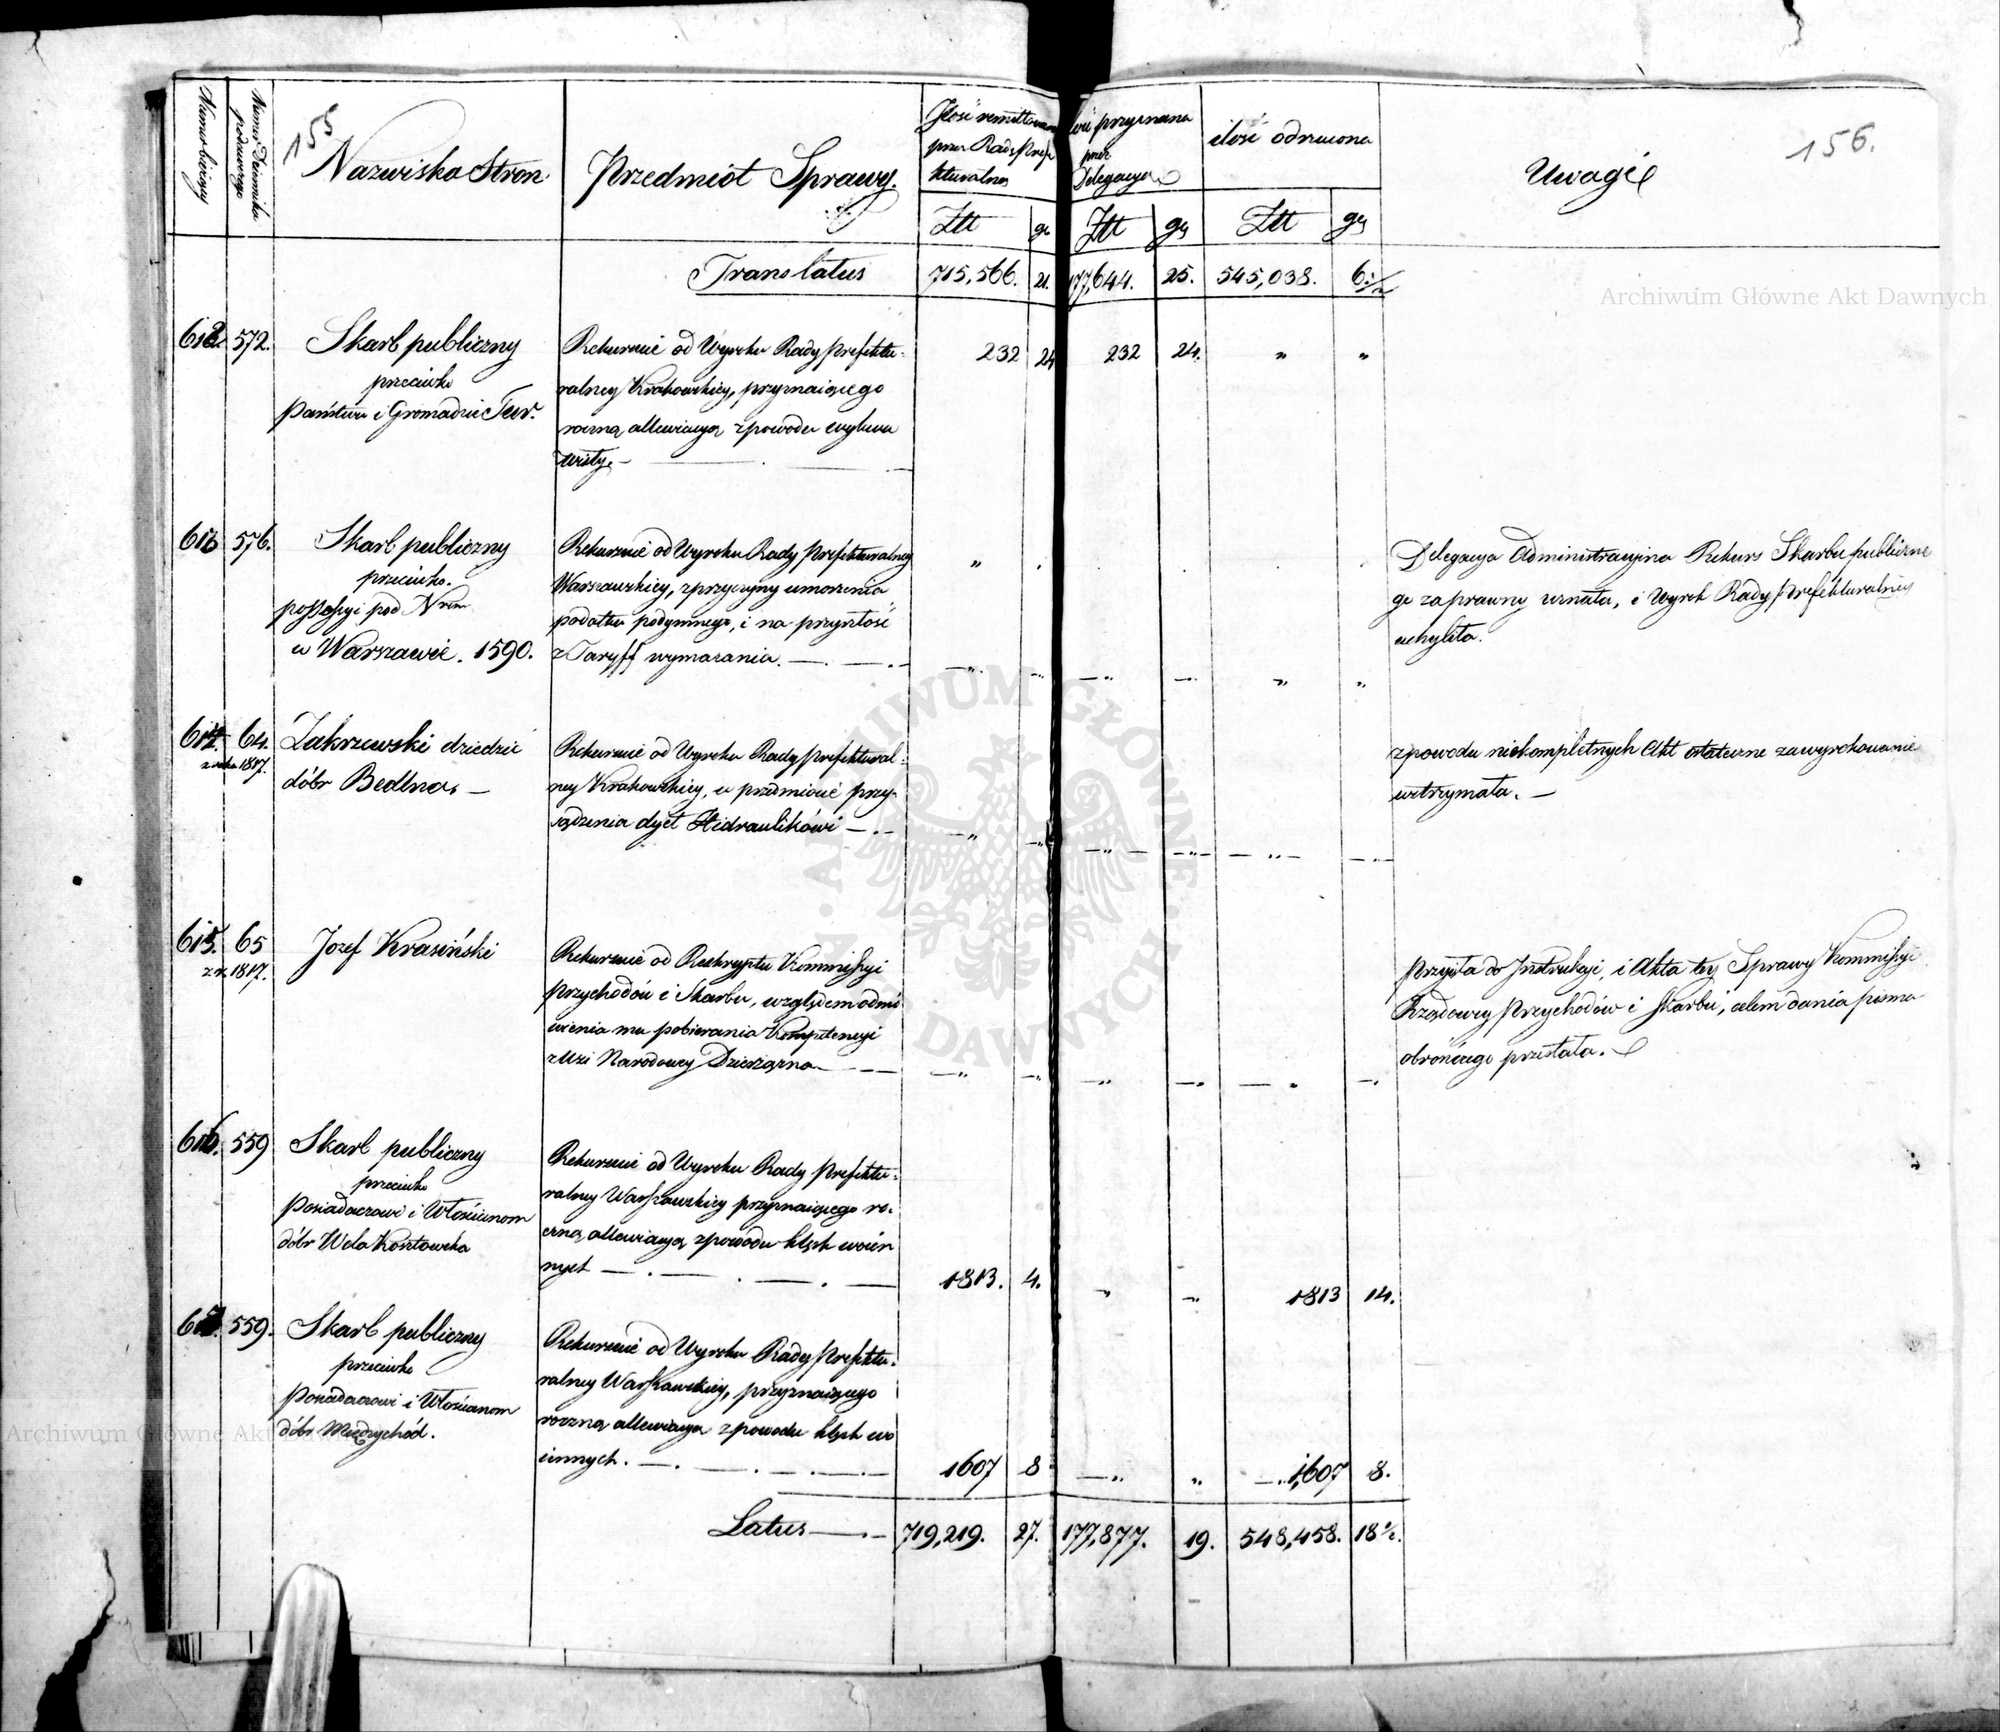 155
156.
Numer bieżący
Numer Dziennika
podawczego
Nazwiska Stron
Przedmiót Sprawy.
Ilość remittowana
przez Radę Prefe
kturalną
ilość przyznana
przez
Delegacyą
ilość odrzucona
Uwagi
Ztt gr Ztt gr Ztt gr
Translatus 715,566. 21. 177,644. 25. 545,038. 6 1/2
612. 572. Skarb publiczny
przeciwko
Państwu i Gromadzie Tur.
Rekurzuie od Wyroku Rady Prefektu-
ralney Krakowskiey, przyznaiącego
roczną allewiacyą z powodu wylewu
Wisły.
232 24 232 24. " "
613 576. Skarb publiczny
przeciwko.
possessyi pod Nrem
w Warszawie. 1590.
Rekurzuie od Wyroku Rady Prefekturalney
Warszawskiey, z przyczyny umorzenia
podatku podymnego, i na przyszłość
z Taryff wymazania.
Delegacya Administracyina Rekurs Skarbu publiczne
go za prawny uznała, i Wyrok Rady Prefekturalney
uchyliła.
614. 64. Zakrzewski dziedzic
z roku 1817.
dóbr Bedlna,
Rekurzuie od Wyroku Rady Prefektural-
ney Krakowskiey, w przedmiocie przy-
sądzenia dyet Hidraulikowi
z powodu niekompletnych Akt ostateczne zawyrokowanie
wstrzymała.
615. 65 Jozef Krasiński
z r. 1817.
Rekurzuie od Reskryptu Kommissyi
Przychodów i Skarbu, względem odmó
wienia mu pobierania Kompetencyi
z Wsi Narodowey Dzierzązna
Przyięła do Instrukcyi, i Akta tey Sprawy Kommissyi
Rządowey Przychodów i Skarbu, celem dania pisma
obronnego przesłała.
616. 559 Skarb publiczny
przeciwko
Posiadaczowi i Włościanom
dóbr Wola Kosztowska
Rekurzuie od Wyroku Rady Prefektu-
ralney Warszawskiey przyznaiącego ro-
czną allewiacyą z powodu klęsk woien
nych
1813. 4. " " 1813 14.
617. 559. Skarb publiczny
przeciwko
Posiadaczowi i Włościanom
dóbr Międzychód.
Rekurzuie od Wyroku Rady Prefektu-
ralney Warszawskiey, przyznaiącego
roczną allewiacyą z powodu klęsk wo
iennych.
1607 8 " " 1,607 8.
Latus 719,219. 27. 177,877. 19. 548,458. 18 1/2.
Archiwum Główne Akt Dawnych
ARCHIWUM GŁÓWNE AKT DAWNYCH
Archiwum Główne Akt Dawnych